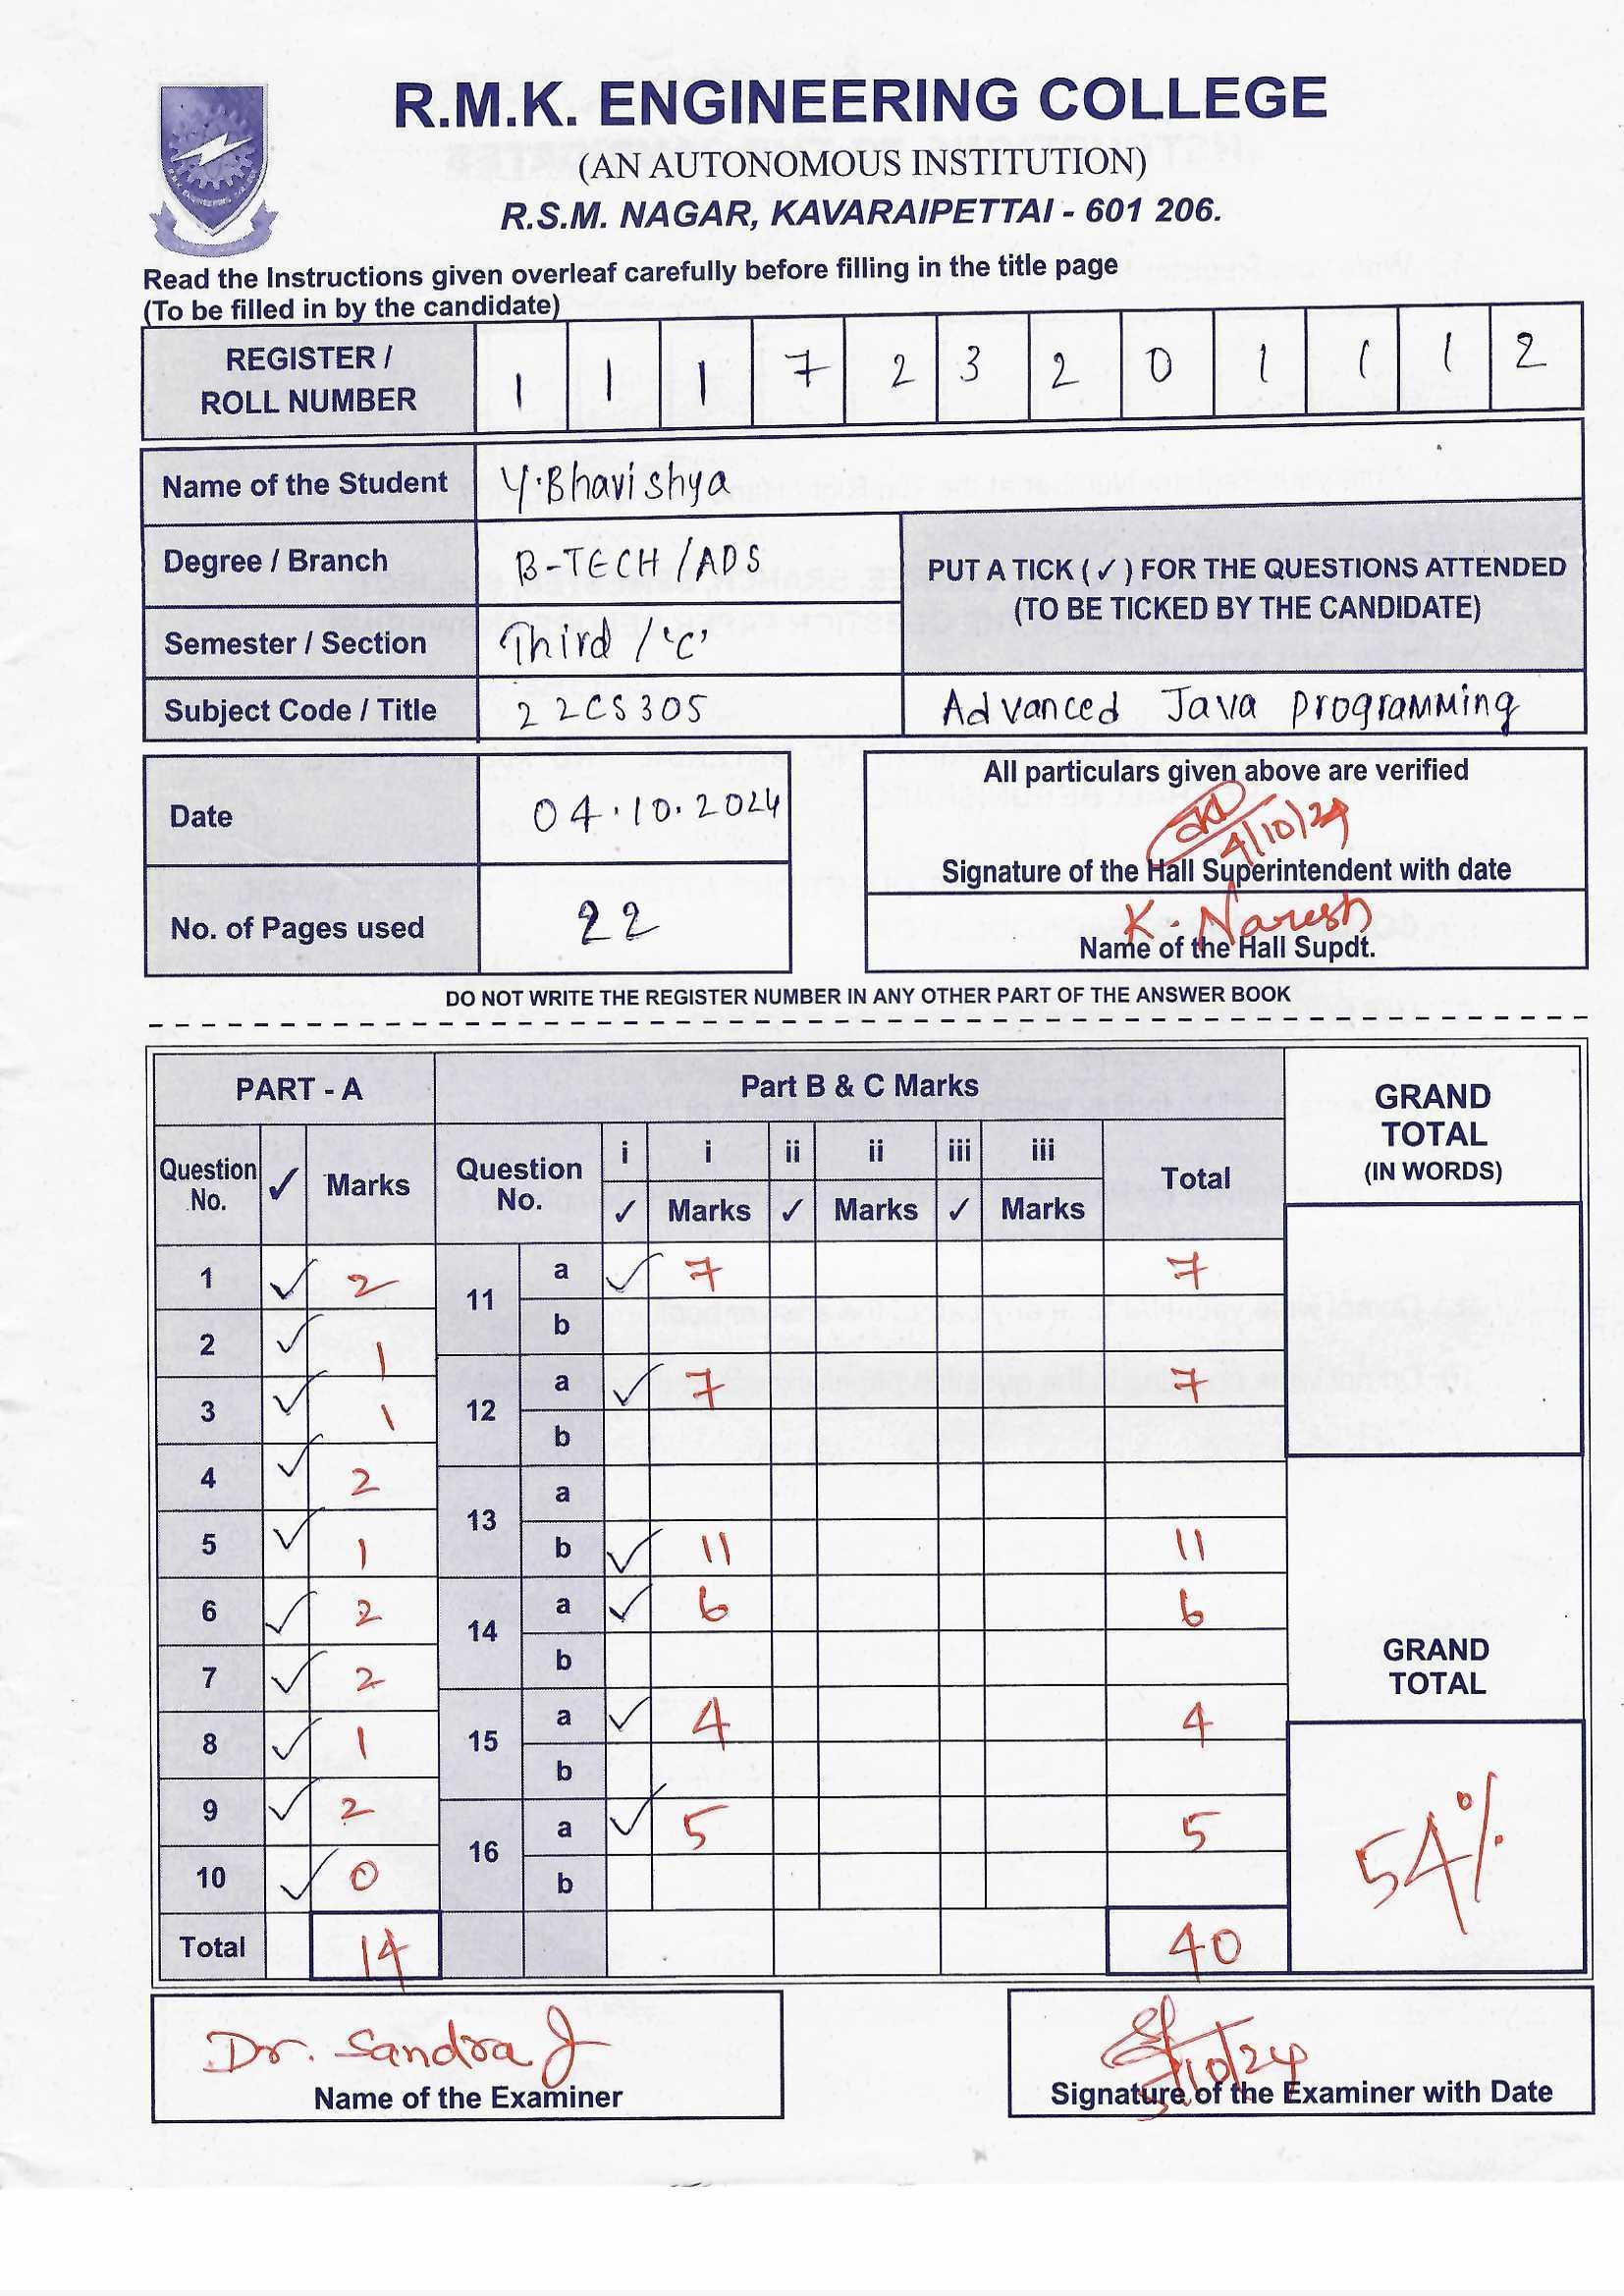 R.M.K. ENGINEERING COLLEGE
(AN AUTONOMOUS INSTITUTION)
R.S.M. NAGAR, KAVARAIPETTAI - 601 206.
Read the Instructions given overleaf carefully before filling in the title page
(To be filled in by the candidate)
REGISTER / ROLL NUMBER 1 1 1 7 2 3 2 0 1 1 1 2
Name of the Student Y.Bhavishya
Degree / Branch B-TECH / ADS
PUT A TICK ( ✓ ) FOR THE QUESTIONS ATTENDED
(TO BE TICKED BY THE CANDIDATE)
Semester / Section Third / 'C'
Subject Code / Title 22CS305 Advanced Java Programming
Date 04.10.2024
All particulars given above are verified
4/10/24
Signature of the Hall Superintendent with date
No. of Pages used 22
K. Naresh
Name of the Hall Supdt.
DO NOT WRITE THE REGISTER NUMBER IN ANY OTHER PART OF THE ANSWER BOOK
PART - A Part B & C Marks GRAND TOTAL (IN WORDS)
Question No. ✓ Marks Question No. i ✓ i Marks ii ✓ ii Marks iii ✓ iii Marks Total
1 ✓ 2 11 a ✓ 7 7
2 ✓ 1 b
3 ✓ 1 12 a ✓ 7 7
b
4 ✓ 2 13 a
5 ✓ 1 b ✓ 11 11
6 ✓ 2 14 a ✓ 6 6
7 ✓ 2 b
GRAND TOTAL
8 ✓ 1 15 a ✓ 4 4
b
9 ✓ 2 16 a ✓ 5 5
10 ✓ 0 b
54%
Total 14 40
Dr. Sandra J
Name of the Examiner
10/24
Signature of the Examiner with Date